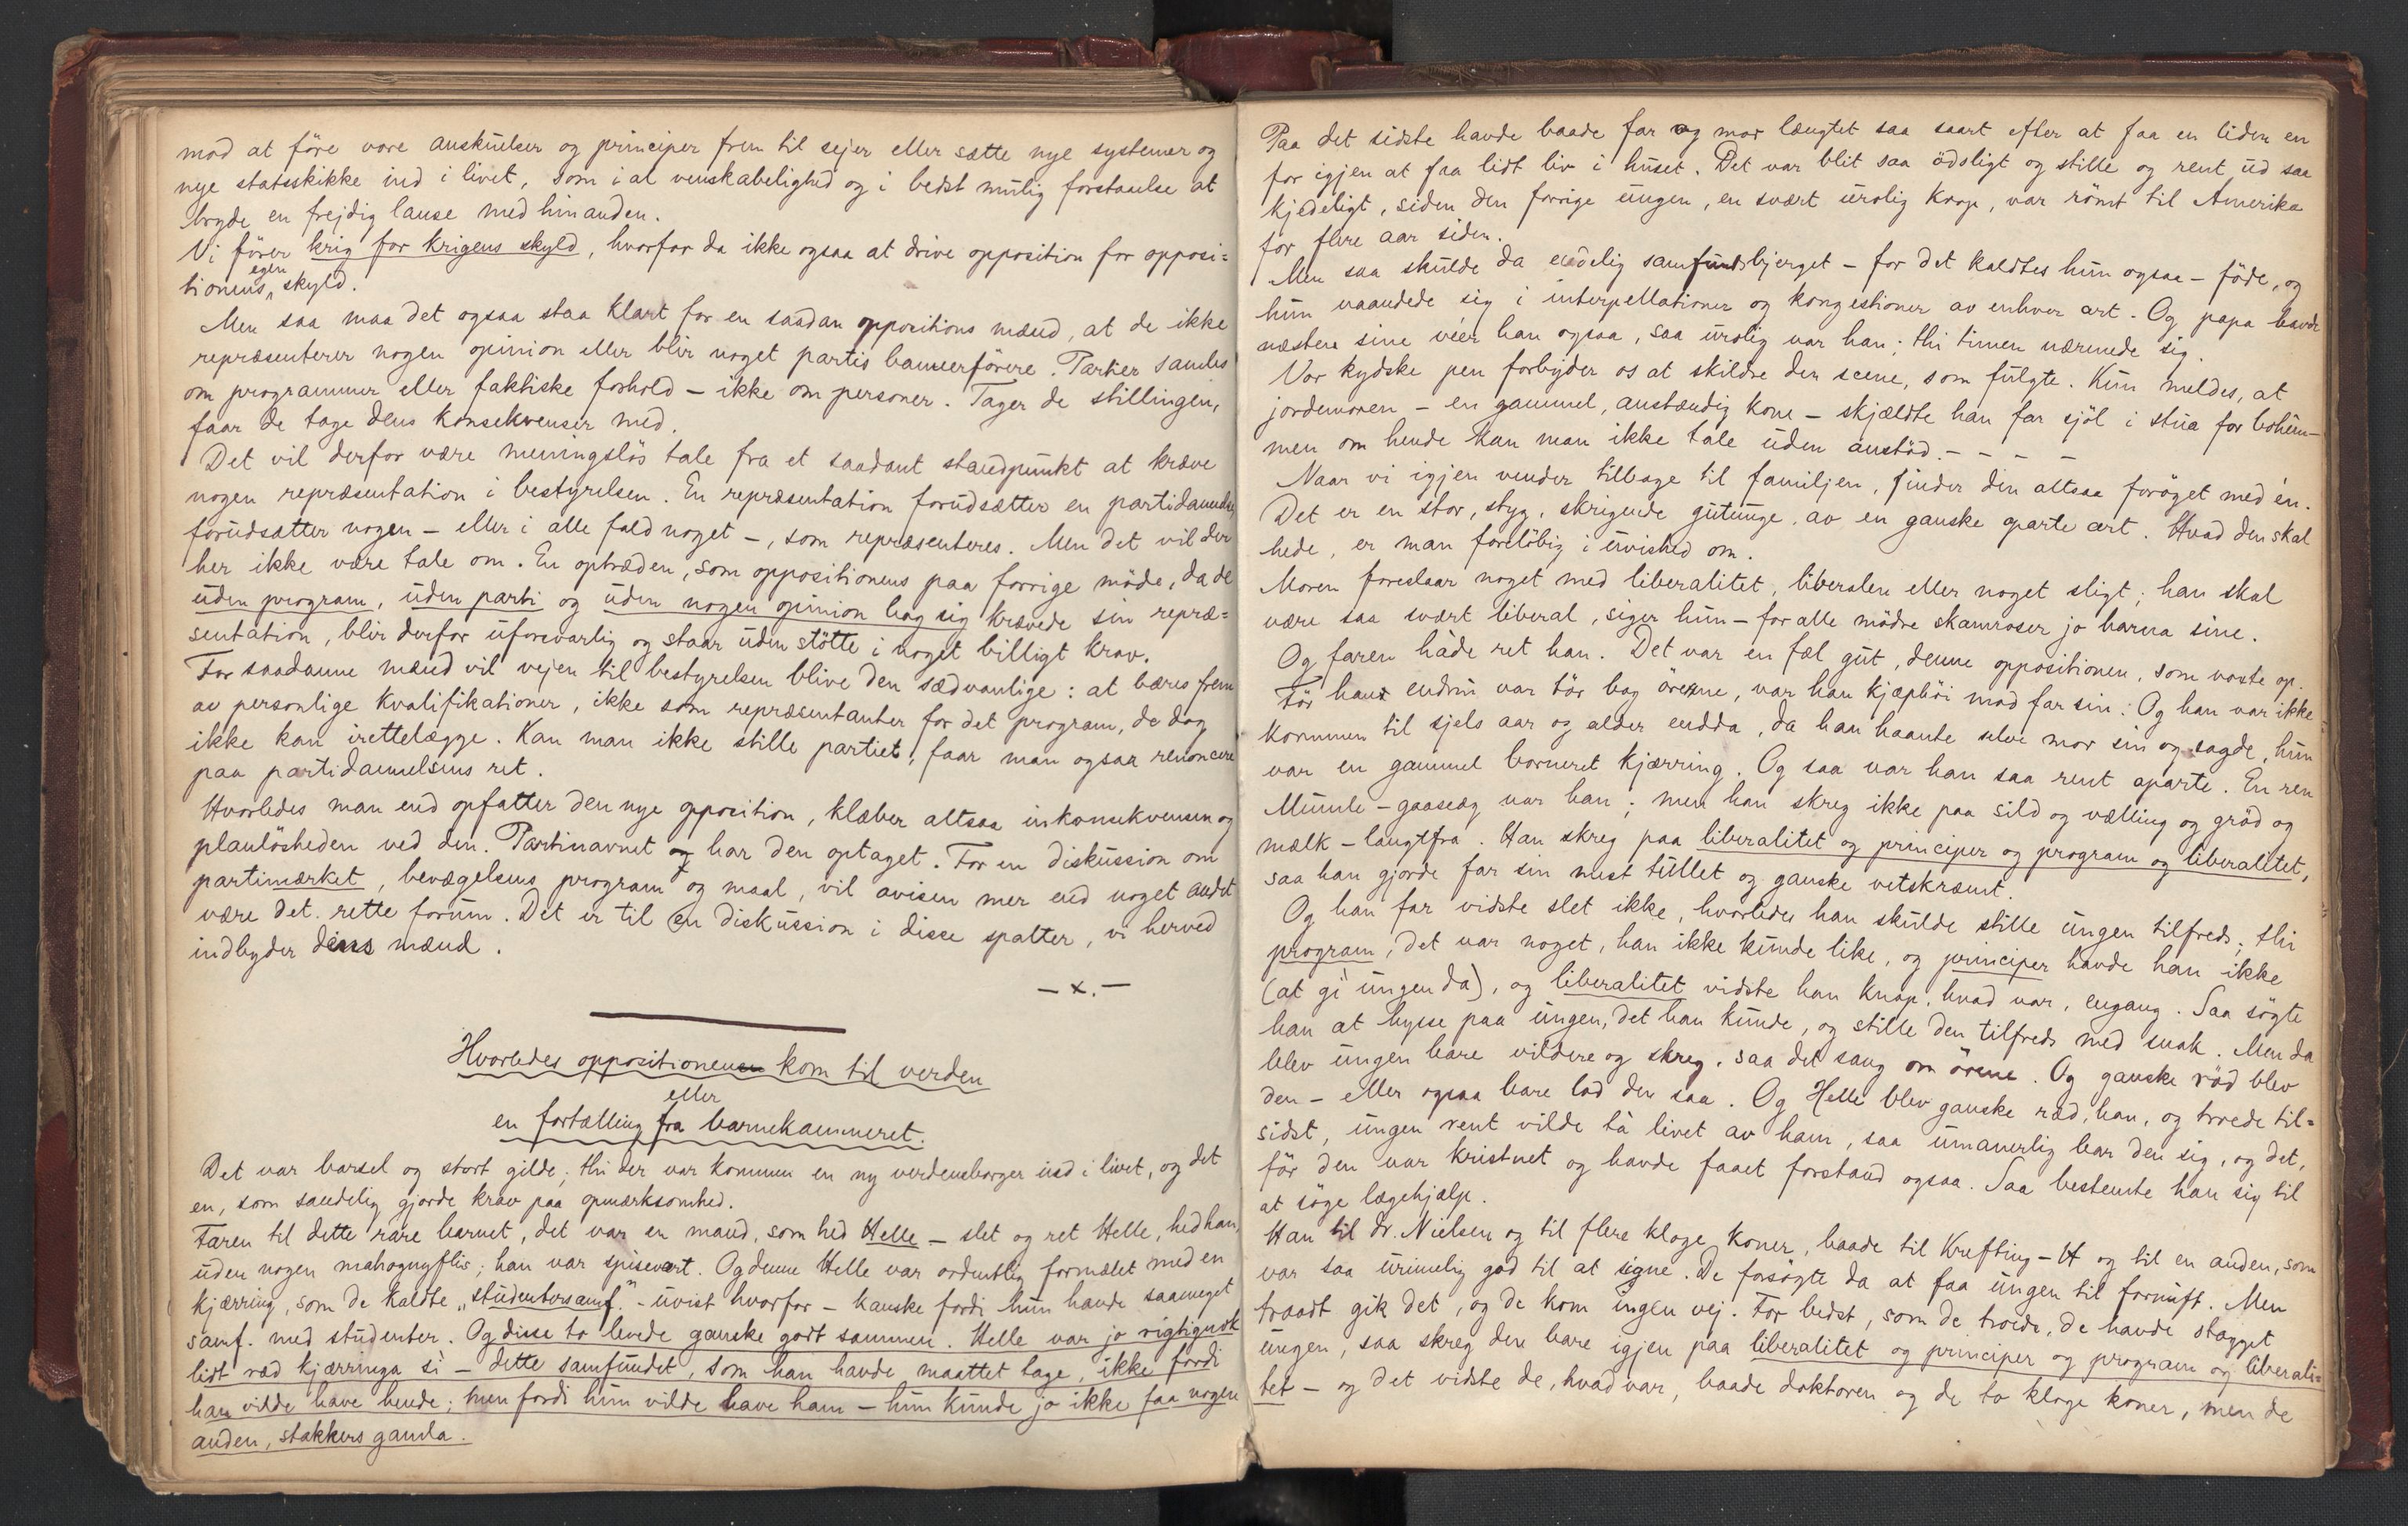 mod at före vore anskuelser og principer frem til sejer eller sætte nye systemer og
nye statsskikke ind i livet, som i al venskabelighed og i bedst mulig forstaaelse at
bryde en frejdig lanse med hinanden.
Vi förer krig for krigens skyld, hvorfor da ikke ogsaa at drive opposition for opposi=
tionens egen skyld.
Men saa maa det ogsaa staa klart for en saadan oppositions mænd, at de ikke
repræsenterer nogen opinion eller blir noget partis bannerförere. Partier samles
om programmer eller faktiske forhold – ikke om personer. Tager de stillingen,
faar de tage dens konsekvenser med.
Det vil derfor være meningslös tale fra et saadant standpunkt at kræve
nogen repræsentation i bestyrelsen. En repræsentation forudsætter en partidannelse,
forudsætter nogen – eller i alle fald noget –, som repræsenteres. Men det vil der
her ikke være tale om. En optræden, som oppositionens paa forrige möde, da de
uden program, uden parti og uden nogen opinion bag sig krævede sin repræ=
sentation, blir derfor uforsvarlig og staar uden stötte i noget billigt krav.
For saadanne mænd vil vejen til bestyrelsen blive den sædvanlige: at bæres frem
av personlige kvalifikationer, ikke som repræsentanter for det program, de dog
ikke kan irettelægge. Kan man ikke stille partiet, faar man ogsaa renoncere
paa partidannelsens ret.
Hvorledes man end opfatter den nye opposition, klæber altsaa inkonsekvensen og
planlösheden ved den. Partinavnet og har den optaget. For en diskussion om
partimærket, bevægelsens program og maal, vil avisen mer end noget andet
være det rette forum. Det er til en diskussion i disse spalter, vi herved
indbyder dens mænd.
– x. –
Hvorledes oppositionen kom til verden
eller
en fortælling fra barnekammeret.
Det var barsel og stort gilde; thi der var kommen en ny verdensborger ind i livet, og det
en, som sandelig gjorde krav paa opmærksomhed.
Faren til dette rare barnet, det var en mand, som hed Helle – slet og ret Helle, hed han,
uden nogen mahognyflis; han var spisevert. Og denne Helle var ordentlig formælet med en
kjærring, som de kaldte „studentersamf." – uvist hvorfor – kanske fordi hun havde saameget
samf. med studenter. Og disse to levede ganske godt sammen. Helle var jo rigtignok
lidt ræd kjærringa si – dette samfundet, som han havde maattet tage, ikke fordi
han vilde have hende; men fordi hun vilde have ham – hun kunde jo ikke faa nogen
anden, stakkers gamla.
Paa det sidste havde baade far og mor længtet saa saart efter at faa en liden en
for igjen at faa lidt liv i huset. Det var blit saa ödsligt og stille og rent ud saa
kjedeligt, siden den forrige ungen, en svært urolig krop, var römt til Amerika
for flere aar siden.
Men saa skulde da endelig samfundsbjerget – for det kaldtes hun ogsaa – föde, og
hun vaandede sig i interpellationer og kongestioner av enhver art. Og papa havde
næsten sine véer han ogsaa, saa urolig var han; thi timen nærmede sig.
Vor kydske pen forbyder os at skildre den scene, som fulgte. Kun meldes, at
jordemoren – en gammel, anstændig kone – skjældte han far sjöl i stua for bohêm –
men om hende kan man ikke tale uden anstöd. – – – –
Naar vi igjen vender tilbage til familjen, finder den altsaa foröget med én.
Det er en stor, styg, skrigende gutunge, av en ganske aparte art. Hvad den skal
hede, er man foreløbig i uvished om.
Moren foreslaar noget med liberalitet, liberalen eller noget sligt; han skal
være saa svært liberal, siger hun – for alle mödre skamroser jo barna sine.
Og faren håde ret han. Det var en fæl gut, denne oppositionen, som vokste op.
För han endnu var tör bag örene, var han kjæphöi mod far sin. Og han var ikke
kommen til sjels aar og alder endda, da han haante selve mor sin og sagde, hun
var en gammel borneret kjærring. Og saa var han saa rent aparte. En ren
Mumle-gaaseæg var han; men han skreg ikke paa sild og vælling og gröd og
mælk – langtfra. Han skreg paa liberalitet og principer og program og liberalitet,
saa han gjorde far sin mest tullet og ganske vetskræmt.
Og han far vidste slet ikke, hvorledes han skulde stille ungen tilfreds; thi
program, det var noget, han ikke kunde like, og principer havde han ikke
(at gi ungen da), og liberalitet vidste han knap, hvad var, engang. Saa sögte
han at hysse paa ungen, det han kunde, og stille den tilfreds med snak. Men da
blev ungen bare vildere og skreg, saa det sang om örene. Og ganske röd blev
den – eller ogsaa bare lod den saa. Og Helle blev ganske ræd, han, og trode til=
sidst, ungen rent vilde tà livet av ham, saa umanerlig bar den sig, og det,
för den var kristnet og havde faaet forstand ogsaa. Saa bestemte han sig til
at söge lægehjælp.
Han til dr. Nielsen og til flere kloge koner, baade til Krefting-H og til en anden, som
var saa urimelig god til at signe. De forsögte da at faa ungen til fornuft. Men
traadt gik det, og de kom ingen vej. For bedst, som de troede, de havde stagget
ungen, saa skreg den bare igjen paa liberalitet og principer og program og liberali=
tet – og det vidste de, hvad var, baade doktoren og de to kloge koner, men de